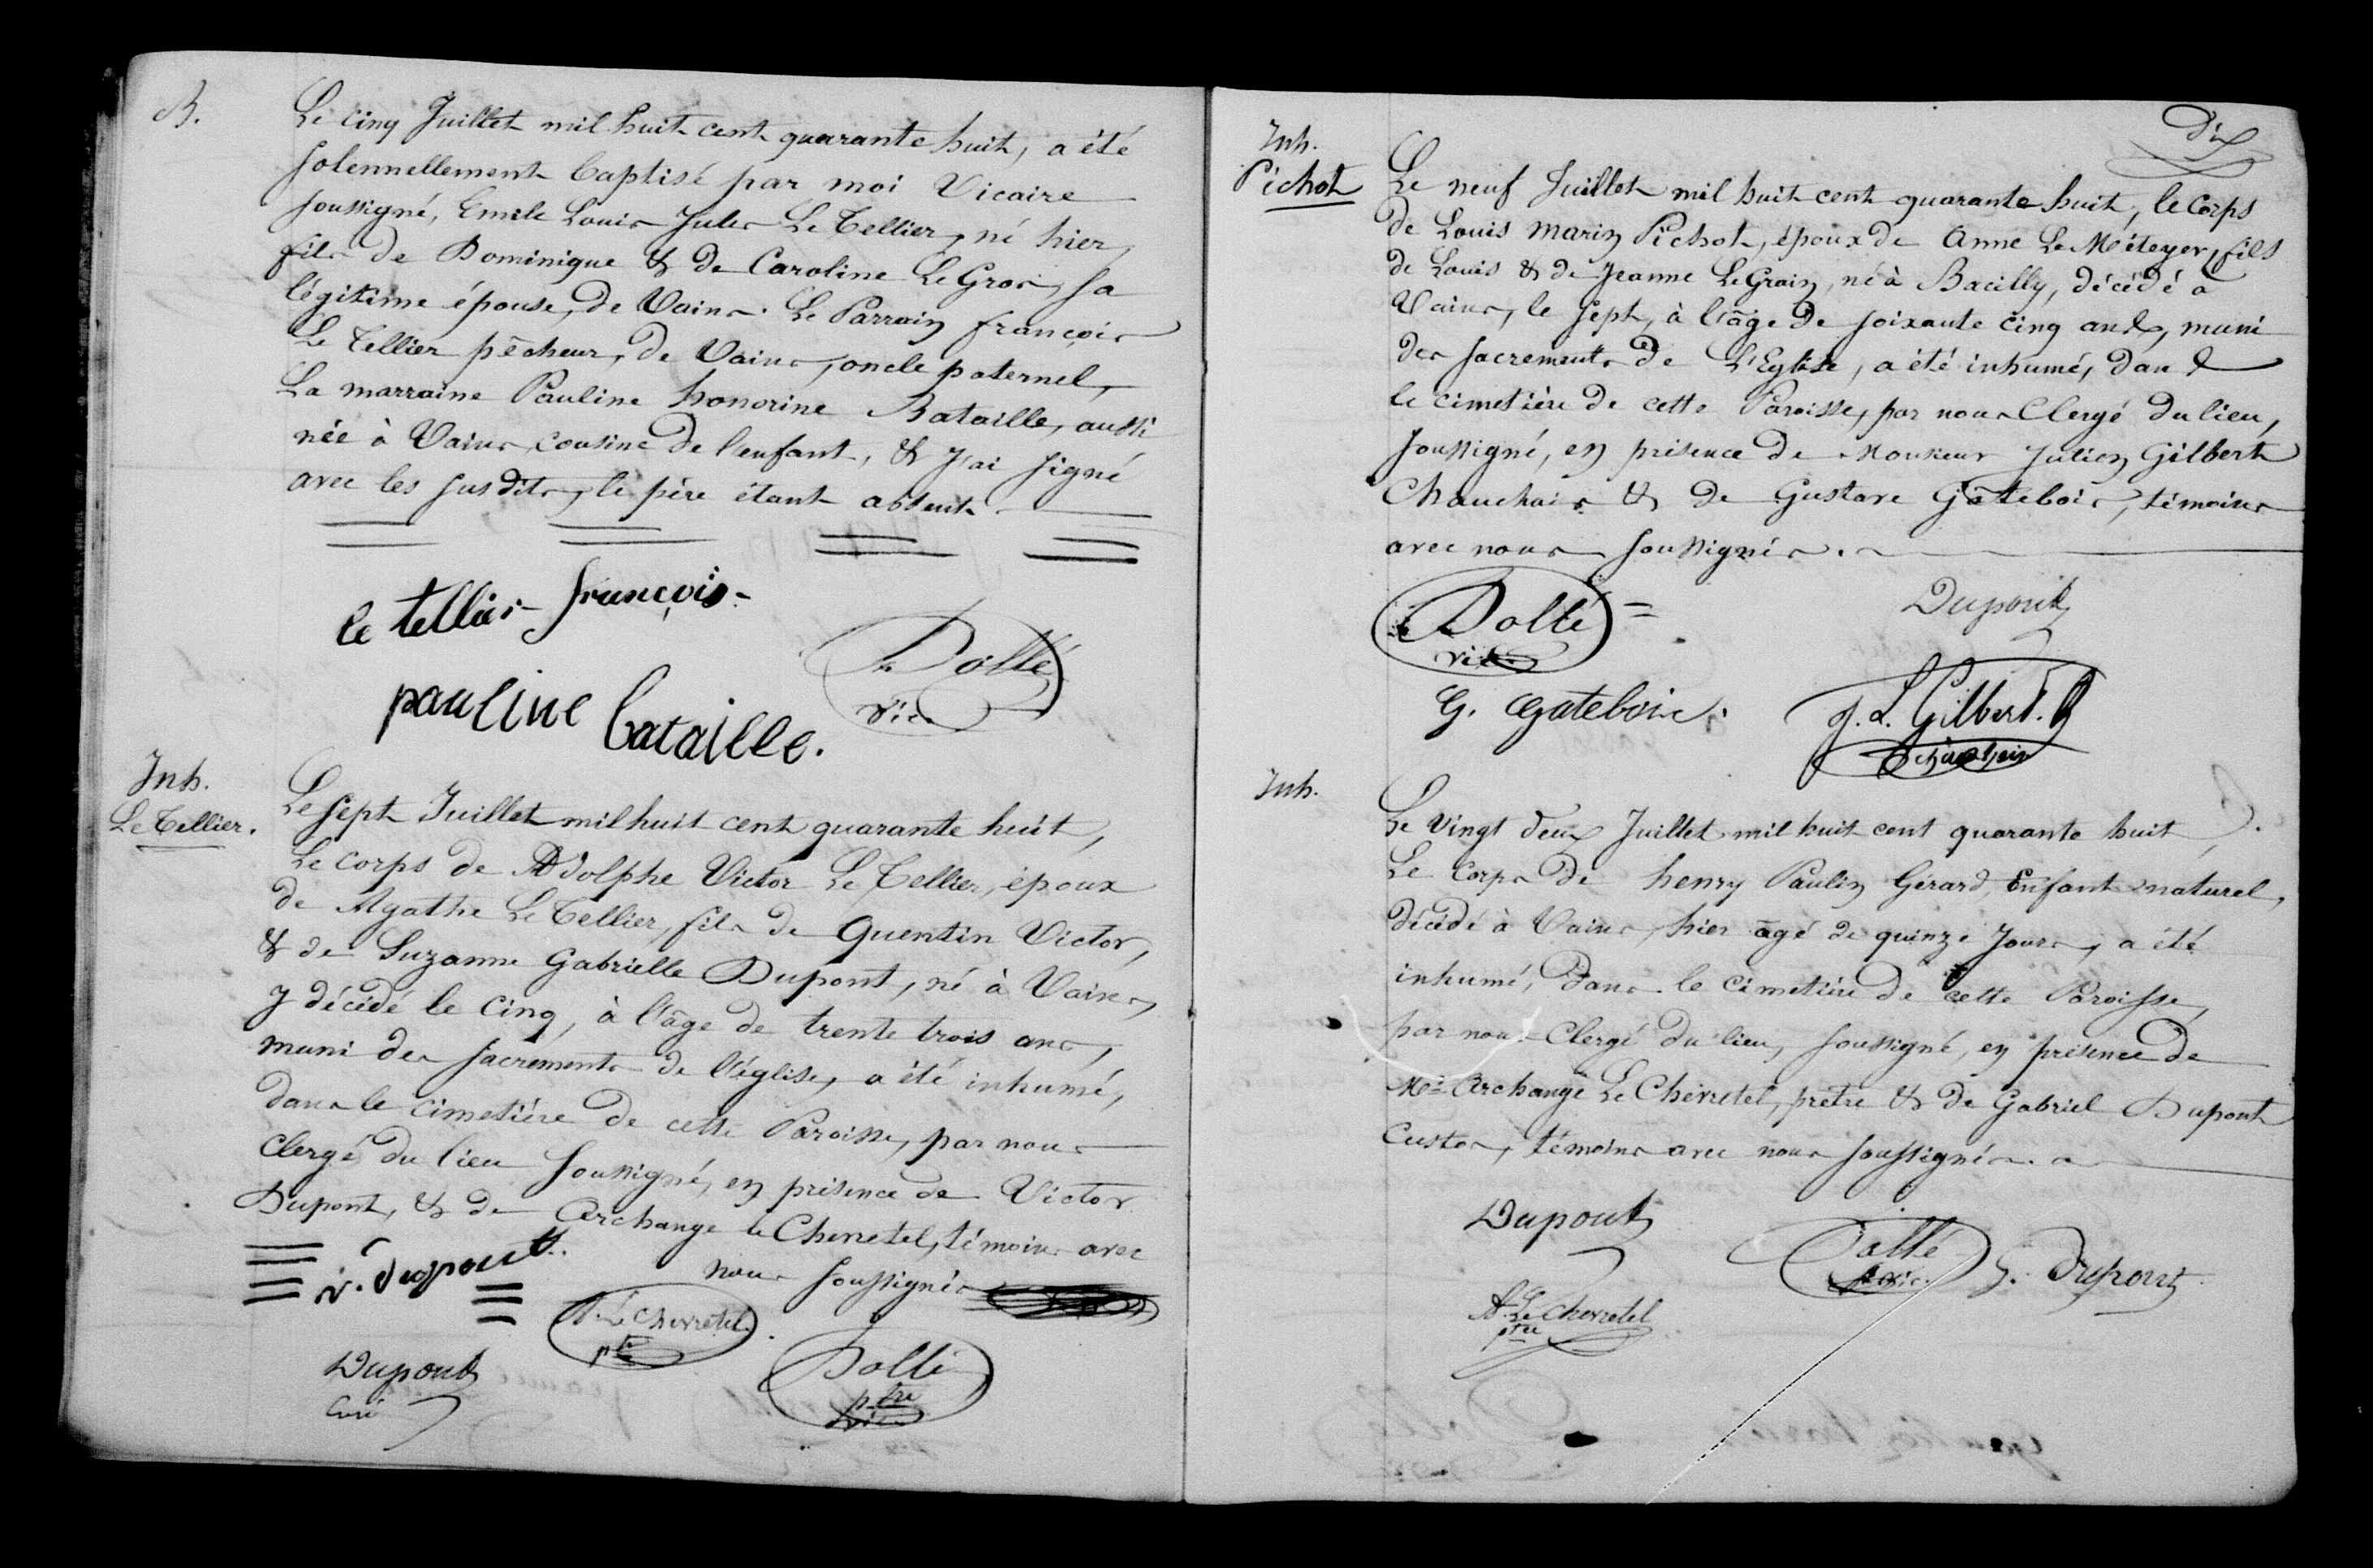 B.
Le cinq Juillet mil huit cent quarante huit, a été
solennellement baptisé par moi Vicaire
soussigné, Emile Louis Jules Le Tellier, né hier,
fils de Dominique & de Caroline Le Gros, sa
légitime épouse, de Vains. Le Parrain françois
Le Tellier pêcheur, de Vains, oncle paternel,
La marraine Pauline honorine Bataille, aussi
née à Vains, cousine de l'enfant, & J'ai signé
avec les susdits, le père étant absent.
le tellier françois
Dollé
vic.
pauline bataille.
Inh.
Le Tellier.
Le Sept Juillet mil huit cent quarante huit,
Le corps de Adolphe Victor Le Tellier, époux
de Agathe Le Tellier, fils de Quentin Victor,
& de Suzanne Gabrielle Dupont, né à Vains,
y décédé le cinq, à l'âge de trente trois ans,
muni des sacrements de l'église, a été inhumé,
dans le cimetière de cette Paroisse, par nous
Clergé du lieu soussigné, en présence de Victor
Dupont, & de Archange le Chevretel, témoins avec
nous soussignés
v. dupont.
A. Le Chevretel
ptre
Dupont
Curé
Dollé
ptre
vic
Dix
Inh.
Pichot
Le neuf Juillet mil huit cent quarante huit, le corps
de Louis Marin Pichot, époux de Anne Le Méteyer, fils
de Louis & de Jeanne Le Grain, né à Bacilly, décédé à
Vains, le sept, à l'âge de soixante cinq ans, muni
des sacrements de L'Eglise, a été inhumé, dans
le cimetière de cette Paroisse, par nous Clergé du lieu,
soussigné, en présence de Monsieur Julien Gilbert
Chauchais & de Gustave Gâtebois, témoins
avec nous soussignés.
Dollé
vic.
Dupont
G. Gatebois.
J. L. Gilbert.
Inh.
Le vingt deux Juillet mil huit cent quarante huit,
Le Corps de henry Paulin Gérard, Enfant naturel,
décédé à Vains, hier âgé de quinze Jours, a été
inhumé, dans le Cimetière de cette Paroisse,
par nous Clergé du lieu, soussigné, en présence de
Mr Archange Le Chevretel, prêtre & de Gabriel Dupont
Custos, témoins avec nous soussignés.
Dupont
Dollé
vic.
G. Dupont
A. Le Chevretel
ptre